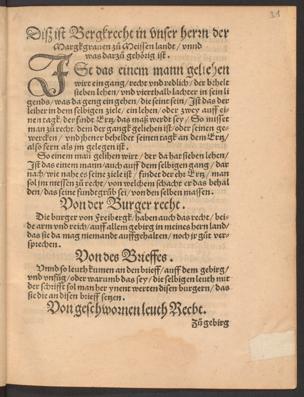 31
Diß ist Bergkrecht in vnser herrn der
Margkgrauen zů Meissen landt / vnnd
was darzů gehörig ist.
ISt das einem mann geliehen
wirt ein gang / recht vnd redlich / der behelt
sieben lehen / vnd vierthalb lachter in sein li
gends / was da geng ein gehen / die seine sein / Ist das der
leiher in dem selbigen ziele / ein lehen / oder zwey auff ei
nen tag / der fünde Ertz / das maß werde sey / So müsset
man zů recht / dem der gangk geliehen ist / oder seinen ge
wercken / vnd jhener behilder seinen tagk an dem Ertz /
also fern als im gelegen ist.
So einem mañ gelihen wirt / der da hat sieben lehen /
Ist das einem mann / auch auff dem selbigen gang / dar
nach / wie nahe es seine ziele ist / findet der ehe Ertz / man
sol jm messen zů recht / von welchem schacht er das behal
den / das seine fundtgrůb sei / von den selben massen.
Von der Burger recht.
Die burger von Freibergk / haben auch das recht / bei-
de arm vnd reich / auff allem gebirg in meines herrn land /
das sie da mag niemande auffgehalten / noch jr gůt ver-
sprechen.
Von des Brieffes.
Vnnd so leuth kumen an den brieff / auff dem gebirg /
vnd vnfůg / oder warumb das sey / die selbigen leuth mit
der schrifft sol man her ynent werten disen burgern / das
sie die an disen brieff setzen.
Von geschwornen leuth Recht.
Zů gebirg